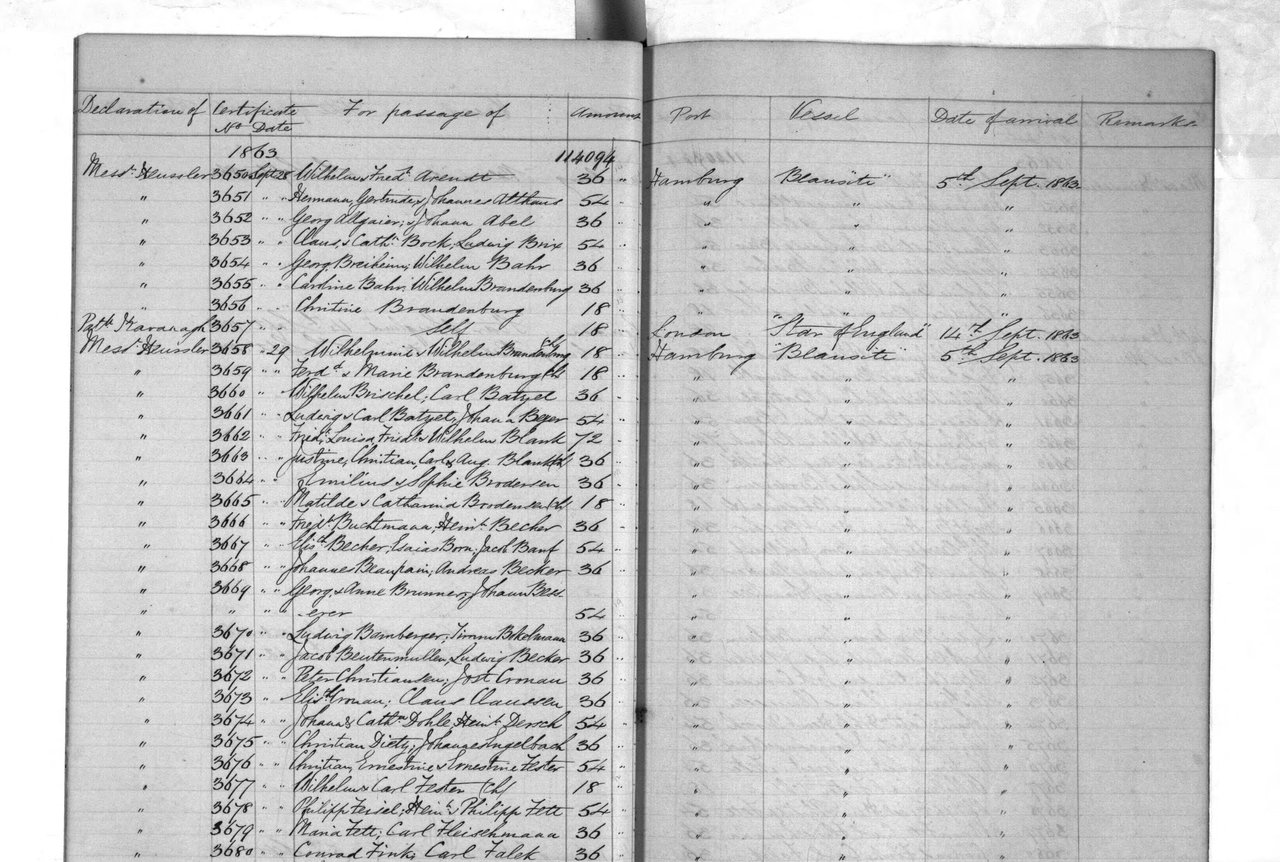 Declaration of Certificate No Date For passage of Amount Port Vessel Date of arrival Remarks
1863 114094
Messrs Heussler 3650 Sept 28 Wilhelm & Friedk Arendt 36 " Hamburg "Beausite" 5th Sept. 1863
" 3651 " " Hermann, Gertrude & Johannes Althaus 54 " " " "
" 3652 " " Georg Allgaier; & Johann Abel 36 " " "
" 3653 " " Claus & Cath. Bock; Ludwig Brix 54 " " " "
" 3654 " " Georg Breiheim; Wilhelm Bahr 36 " " " "
" 3655 " " Caroline Bahr; Wilhelm Brandenburg 36 " " " "
" 3656 " " Christine Brandenburg 18 " " " "
Patk Kavanagh 3657 " " Self 18 " London "Star of England" 14th Sept. 1863
Messrs Heussler 3658 " 29 Wilhelmine & Wilhelm Brandenburg ch 18 " Hamburg "Beausite" 5th Sept. 1863
" 3659 " " Ferdd & Marie Brandenburg ch 18 " " " "
" 3660 " " Wilhelm Brischel; Carl Batzet 36 " " "
" 3661 " " Ludwig & Carl Batzet; Johann Beyer 54 " " " "
" 3662 " " Friedk Louisa Friedk & Wilhelm Blank 72 " " " "
" 3663 " " Justine, Christian, Carl & Aug. Blank ch 36 " " " "
" 3664 " " Emilius & Sophie Brodersen 36 " " " "
" 3665 " " Matilde & Catharina Brodersen ch 18 " " " "
" 3666 " " Friedk Buchtmann; Heinh Becher 36 " " " "
" 3667 " " Elisth Becher; Esaias Born; Jacob Banf 54 " " " "
" 3668 " " Johanne Beaupain; Andreas Becker 36 " " " "
" 3669 " " Georg & Anne Brunner; Johann Bess
" " " " -erer 54 " " " "
" 3670 " " Ludwig Bamberger; Timm Bokelmann 36 " " " "
" 3671 " " Jacob Beutenmuller; Ludwig Becker 36 " " "
" 3672 " " Peter Christiansen; Jost Cronau 36 " " " "
" 3673 " " Elisth Cronau; Claus Claussen 36 " " " "
" 3674 " " Johann & Cathn Dohle; Heinh Dersch 54 " " " "
" 3675 " " Christian Dietz; Johannes Engelbach 36 " " " "
" 3676 " " Christian, Ernestine & Ernestine Fester 54 " " " "
" 3677 " " Wilhelm & Carl Fester ch 18 " " " "
" 3678 " " Philipp Feisel; Heinh & Philipp Fett 54 " " " "
" 3679 " " Maria Fett; Carl Fleischmann 36 " " " "
" 3680 " " Conrad Fink; Carl Falek 36 " " " "